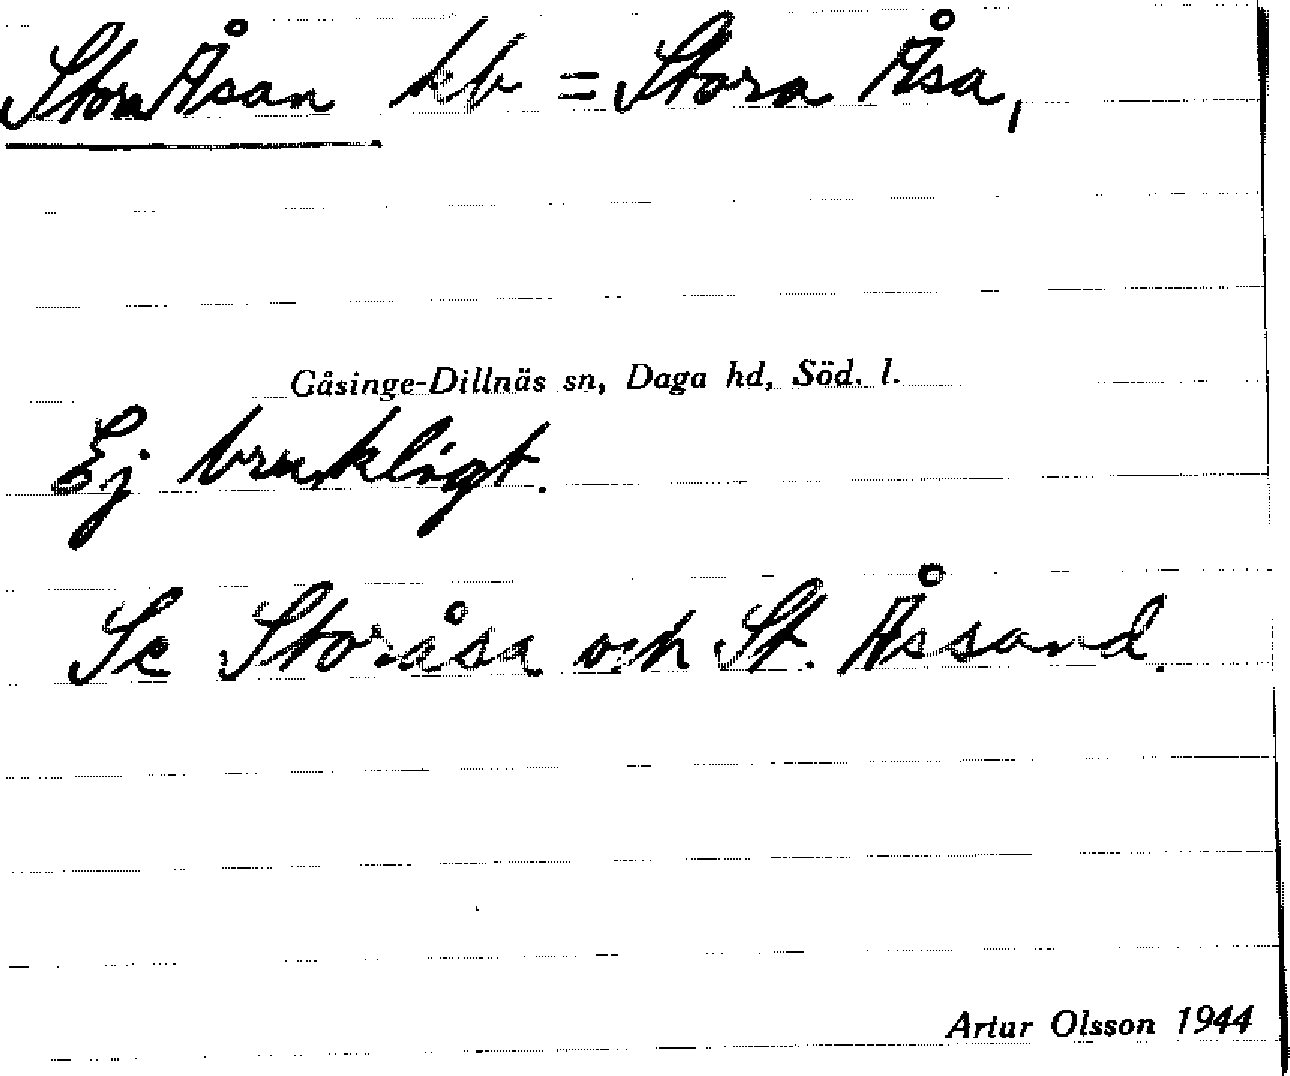 Stora Åsan kb = Stora Åsa,
Gåsinge-Dillnäs sn, Daga hd, Söd. l.
Ej brukligt.
Se Storåsa och St. Åssand.
Artur Olsson 1944